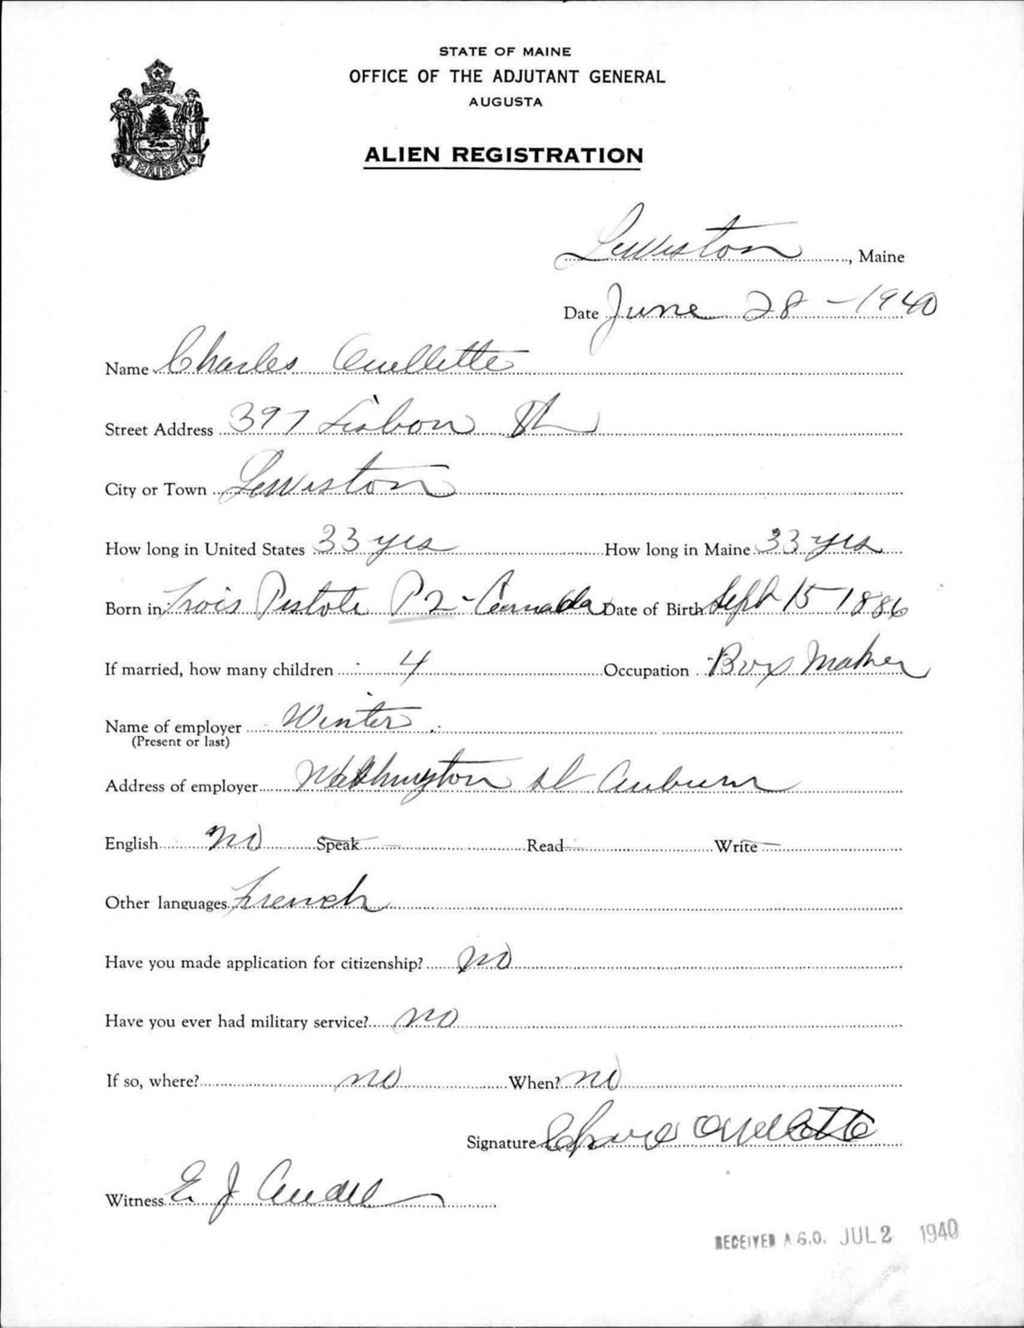 STATE OF MAINE
OFFICE OF THE ADJUTANT GENERAL
AUGUSTA
ALIEN REGISTRATION
MAINE
Lewiston, Maine
Date June 28 - 1940
Name Charles Ouellette
Street Address 397 Lisbon St
City or Town Lewiston
How long in United States 33 yrs How long in Maine 33 yrs
Born in Trois Pistole P2 - Canada Date of Birth Sept 15 1886
If married, how many children 4 Occupation Box Maker
Name of employer Winter
(Present or last)
Address of employer Washington St Auburn
English no Speak - Read - Write -
Other languages French
Have you made application for citizenship? no
Have you ever had military service? no
If so, where? no When? no
Signature Ouellette
Witness E J
RECEIVED A.G.O. JUL 2 1940